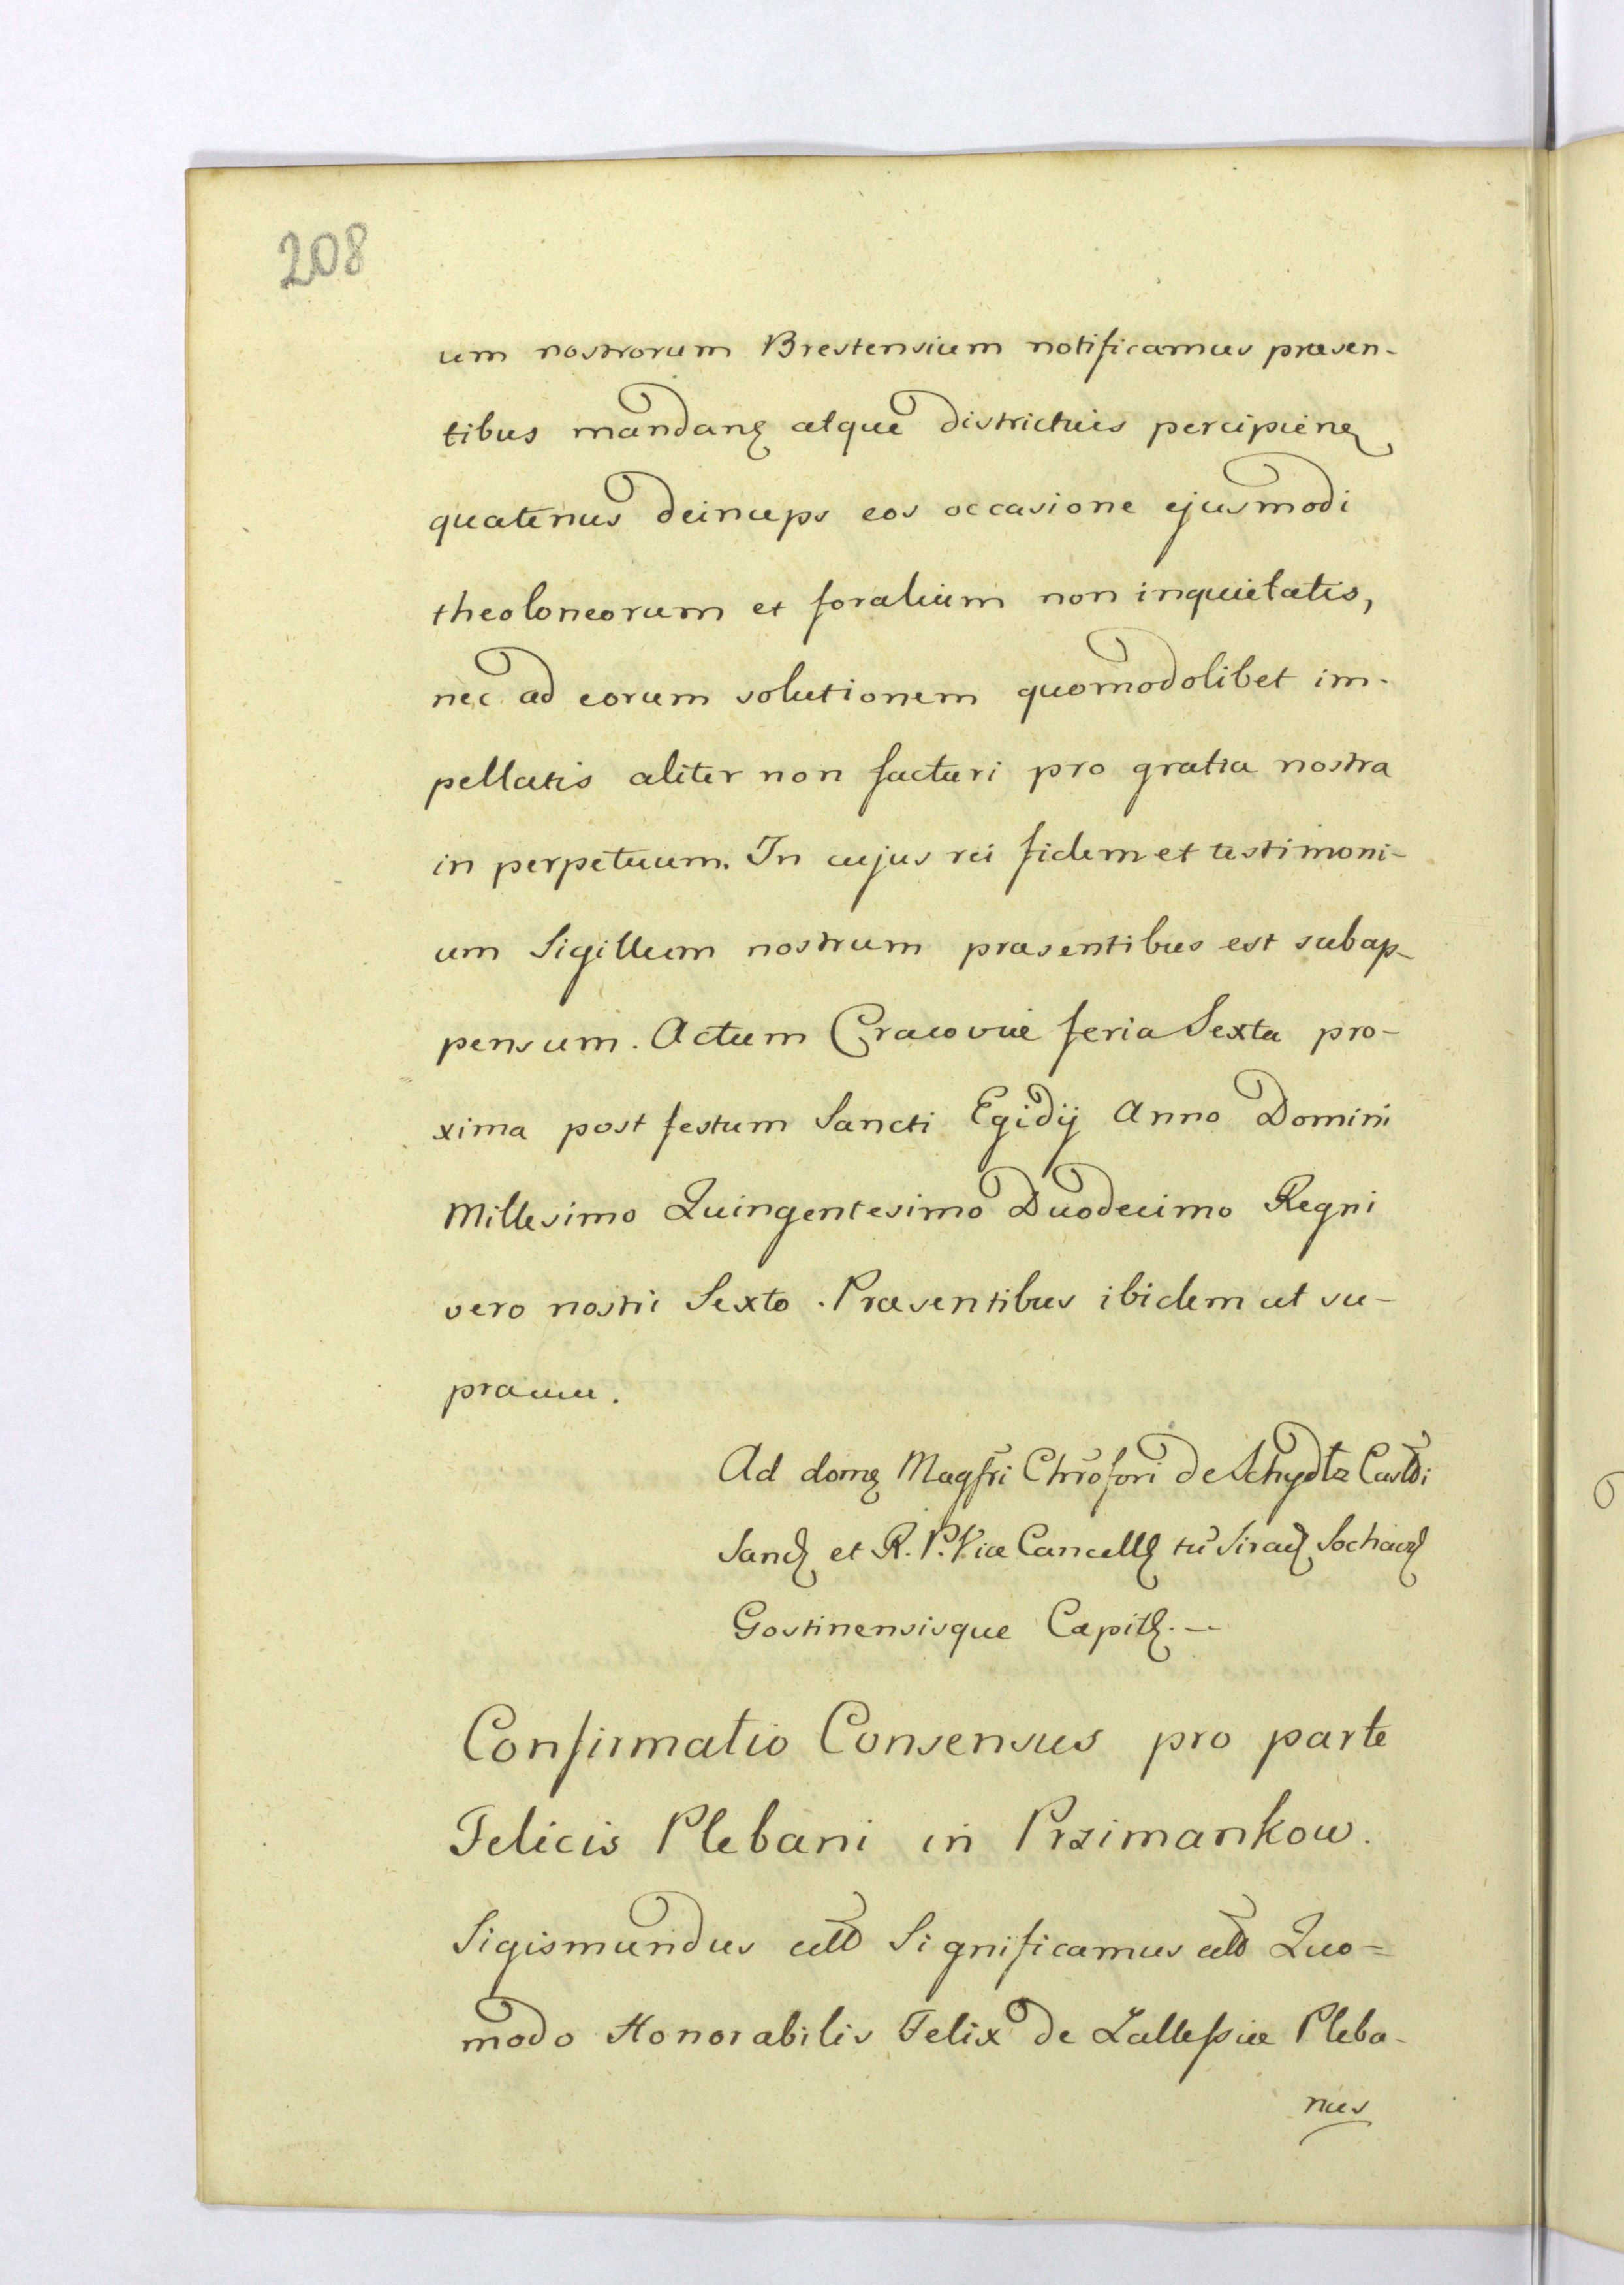 208
um nostrorum Brestensium notificamus præsen-
tibus mandanꝫ atque districtuis percipienꝫ
quatenus deinceps eos occasione ejusmodi
theoloneorum et foralium non inquietatis,
nec ad eorum solutionem quomodolibet im-
pellatis aliter non facturi pro gratia nostra
in perpetuum. In cujus rei fidem et testimoni-
um Sigillum nostrum præsentibus est subap-
pensum. Actum Cracoviæ feria Sexta pro-
xima post festum Sancti Egidij Anno Domini
Millesimo Quingentesimo Duodecimo Regni
vero nostri Sexto. Præsentibus ibidem ut su-
pra
Ad domꝫ Magfri Chrofori de Schydlz Castdi
Sandꝫ et R. P. Vice Cancellꝫ tū Siradꝫ Sochaczꝫ
Gostinensisque Capitꝫ. —
Confirmatio Consensus pro parte
Felicis Plebani in Przimankow.
Sigismundus Significamus Quo=
modo Honorabilis Felix de Zallessiæ Pleba-
nus